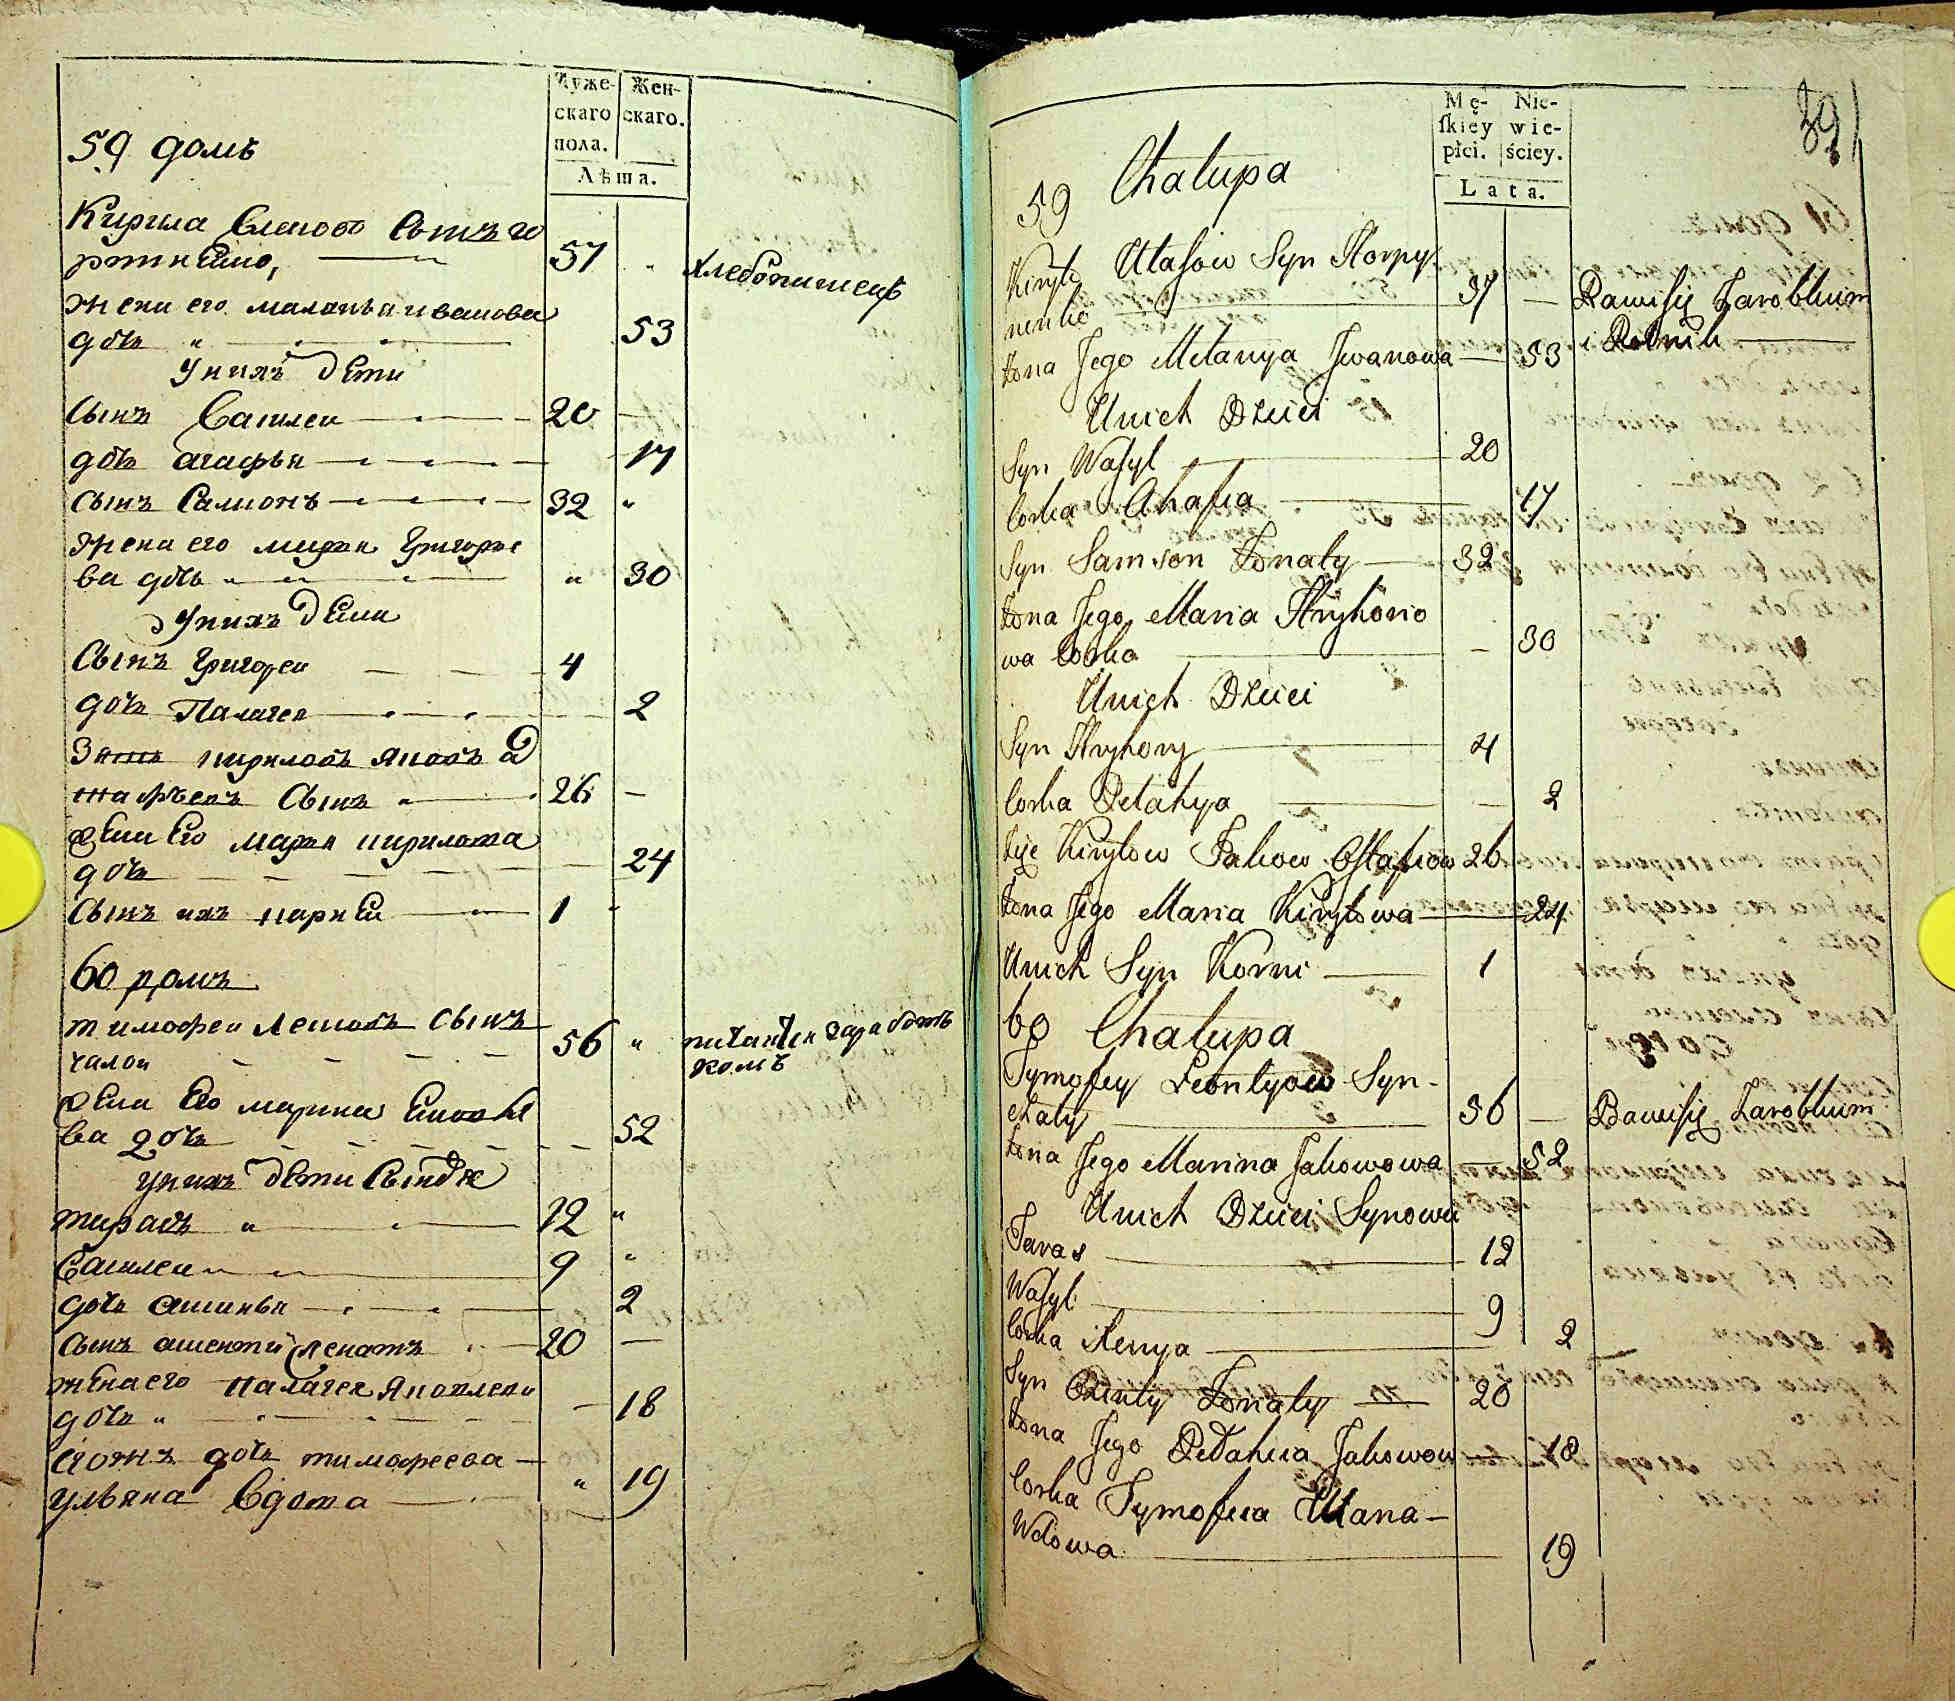 Муже-
скаго
пола.
Жен-
скаго.
Лѣта.
59 домъ
Кирила Сынъ
57 хлебопашецъ
жена его маланья иванова
дочь 53
у нихъ дети
сынъ Василеи 20
дочь агафья 17
сынъ Самсонъ 32
жена его марья Григорье
ва дочь 30
у нихъ дети
Сынъ Григореи 4
дочь Палагея 2
Зять кириловъ яковъ
Сынъ 26
жена Его марья кирилова
дочь 24
сынъ ихъ карнеи 1
60 домъ
тимофеи Сынъ
чалои 56 питаитця заработ
комъ
жена Его марина
ва дочь 52
у нихъ дети Сыновья
тарасъ 12
Василеи 9
дочь аксинья 2
сынъ женатъ 20
жена его палагея яковлева
дочь 18
дочь тимофеева
ульяна вдова 19
Mę-
skiey
płci.
Nie-
wie-
ściey.
Lata.
59 Chalupa
Kiryło Ułasow Syn Horpy
nenko 57 — Bawisię Zarobkiem
i Rolnik
Żona Jego Melanya Jwanowa — 53
Unich Dzieci
Syn Wasyl 20
Corka Ahafia 17
Syn Samson Żonaty 32
Żona Jego Maria Hryhorio
wa Corka — 30
Unich Dzieci
Syn Hryhory 4
Corka Pelahya — 2
Zięc Kiryłow Jakow Ostafiow 26
Żona Jego Maria Kiryłowa 24
Unich Syn Korni 1
60 Chalupa
Tymofey Leontyow Syn
Chaly 56 — Bawisię Zarobkiem
Żona Jego Marina Jakowowa — 52
Unich Dzieci Synowie
Taras 12
Wasyl 9
Corka Xenya 2
Syn Żonaty 20
Żona Jego Pelahia Jakowow 18
Corka Tymofiia Ulana
Wdowa 19